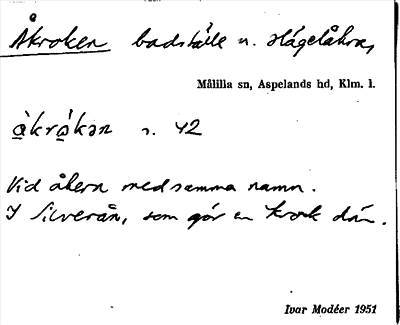 Åkroken badställe n. Hägelåkra,
Målilla sn, Aspelands hd, Klm. l.
s. 42
Vid åkern med samma namn.
I Silverån, som gör en krok där.
Ivar Modéer 1951